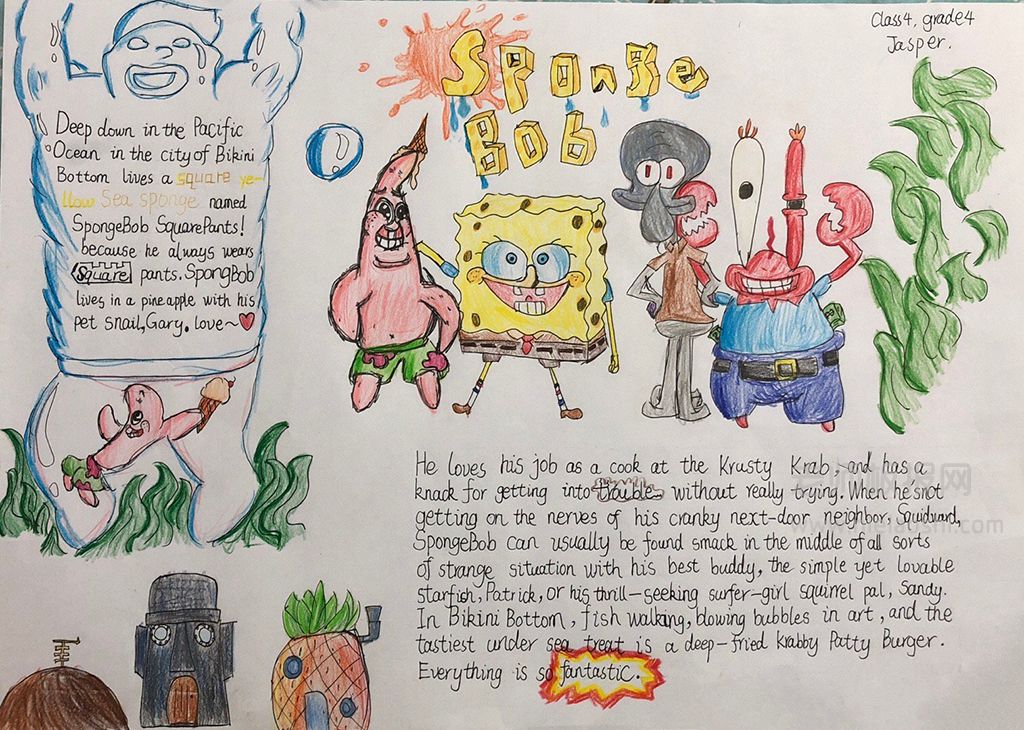 Class4, grade4
Jasper.
SPonge
Bob
Deep down in the Pacific
Ocean in the city of Bikini
Bottom lives a square ye-
llow Sea sponge named
SpongeBob SquarePants!
because he always wears
Square pants. SpongBob
lives in a pineapple with his
pet snail, Gary. love~
He loves his job as a cook at the Krusty Krab, and has a
knack for getting into trouble without really trying. When he's not
getting on the nerves of his cranky next-door neighbor, Squidward,
SpongeBob can usually be found smack in the middle of all sorts
of strange situation with his best buddy, the simple yet lovable
starfish, Patrick, or his thrill-seeking surfer-girl squirrel pal, Sandy.
In Bikini Bottom, fish walking, blowing bubbles in art, and the
tastiest under sea treat is a deep-fried Krabby Patty Burger.
Everything is so fantastic.